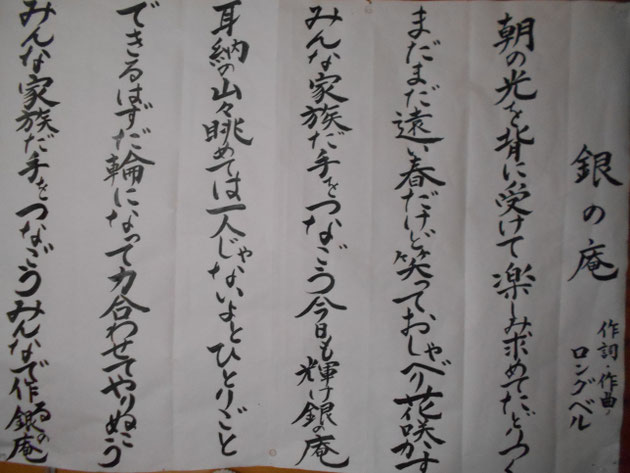 銀の庵
作詞・作曲/ロングベル
朝の光を背に受けて楽しみ求めてたどりつく
まだまだ遠い春だけど笑っておしゃべり花咲かす
みんな家族だ手をつなごう今日も輝け銀の庵
耳納の山々眺めては一人じゃないよとひとりごと
できるはずだ輪になって力合わせてやりぬこう
みんな家族だ手をつなごうみんなで作る銀の庵